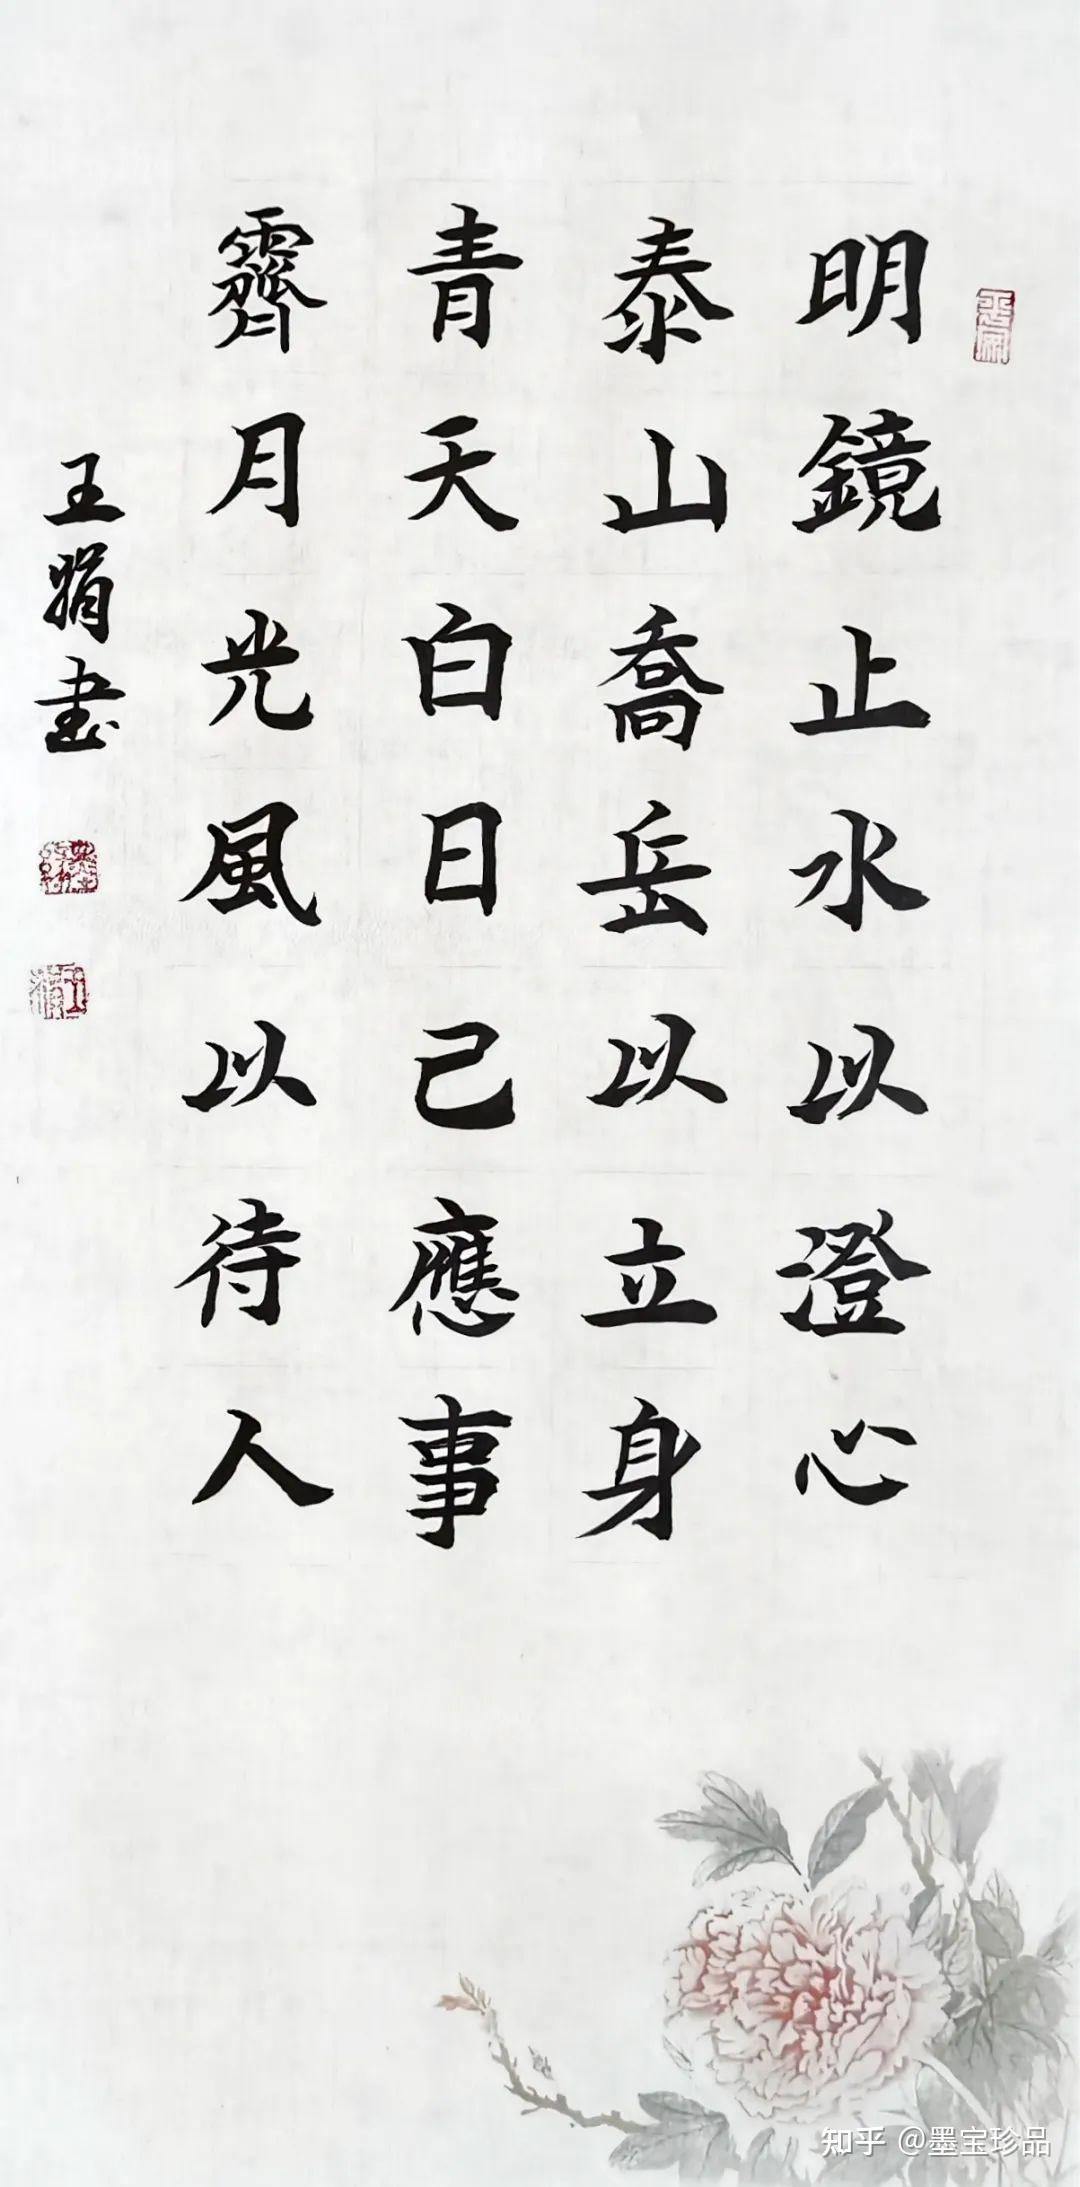 明鏡止水以澄心
泰山喬岳以立身
青天白日己應事
霽月光風以待人
王娟書
知乎 @墨宝珍品